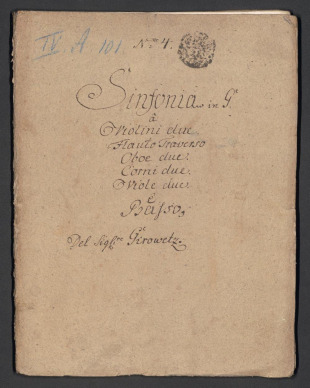 IV A 101. Nro 4.
Sinfonia in G.
à
Violini due
Flauto Traverso
Oboe due.
Corni due.
Viole due.
e
Basso,
Del Sigre Girowetz.